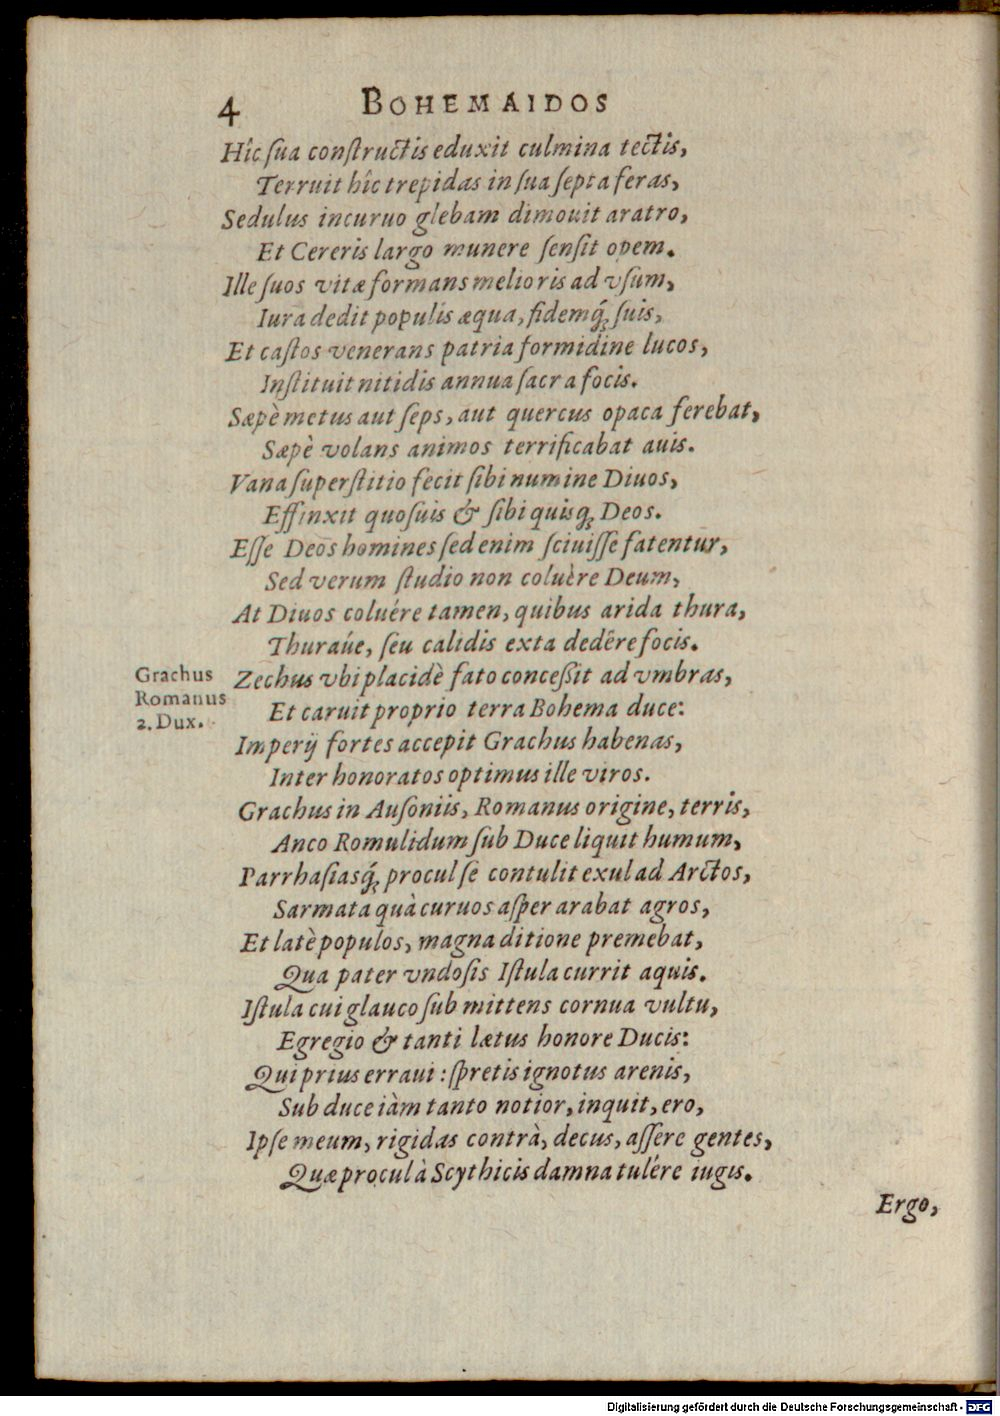 4 BOHEMAIDOS
Hîc ſua conſtructis eduxit culmina tectis,
Terruit hîc trepidas in ſua ſepta feras,
Sedulus incuruo glebam dimouit aratro,
Et Cereris largo munere ſenſit opem.
Ille ſuos vitæ formans melioris ad vſum,
Iura dedit populis æqua, fidemq́; ſuis,
Et caſtos venerans patria formidine lucos,
Inſtituit nitidis annua ſacra focis.
Sæpè metus aut ſeps, aut quercus opaca ferebat,
Sæpè volans animos terrificabat auis.
Vana ſuperſtitio fecit ſibi numine Diuos,
Effinxit quoſuis & ſibi quisq; Deos.
Eſſe Deos homines ſed enim ſciuiſſe fatentur,
Sed verum ſtudio non coluère Deum,
At Diuos coluére tamen, quibus arida thura,
Thuraúe, ſeu calidis exta dedêre focis.
Grachus
Romanus
2. Dux.
Zechus vbi placidè fato conceßit ad vmbras,
Et caruit proprio terra Bohema duce:
Imperij fortes accepit Grachus habenas,
Inter honoratos optimus ille viros.
Grachus in Auſoniis, Romanus origine, terris,
Anco Romulidum ſub Duce liquit humum,
Parrhaſiasq́; procul ſe contulit exul ad Arctos,
Sarmata quà curuos aſper arabat agros,
Et latè populos, magna ditione premebat,
Qua pater vndoſis Iſtula currit aquis.
Iſtula cui glauco ſub mittens cornua vultu,
Egregio & tanti lætus honore Ducis:
Qui prius erraui: ſpretis ignotus arenis,
Sub duce iàm tanto notior, inquit, ero,
Ipſe meum, rigidas contrà, decus, aſſere gentes,
Quæ procul à Scythicis damna tulére iugis.
Ergo,
Digitalisierung gefördert durch die Deutsche Forschungsgemeinschaft - DFG